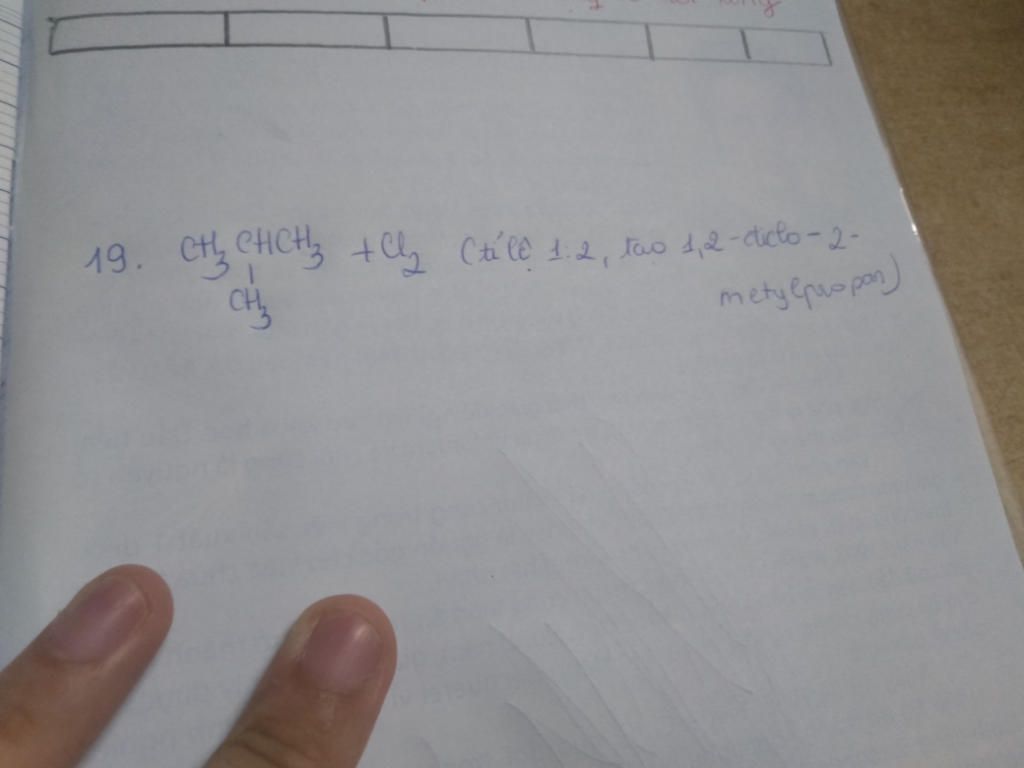 19. CH3CHCH3 + Cl2 (tỉ lệ 1:2, tạo 1,2-điclo-2-
CH3
metylpropan)